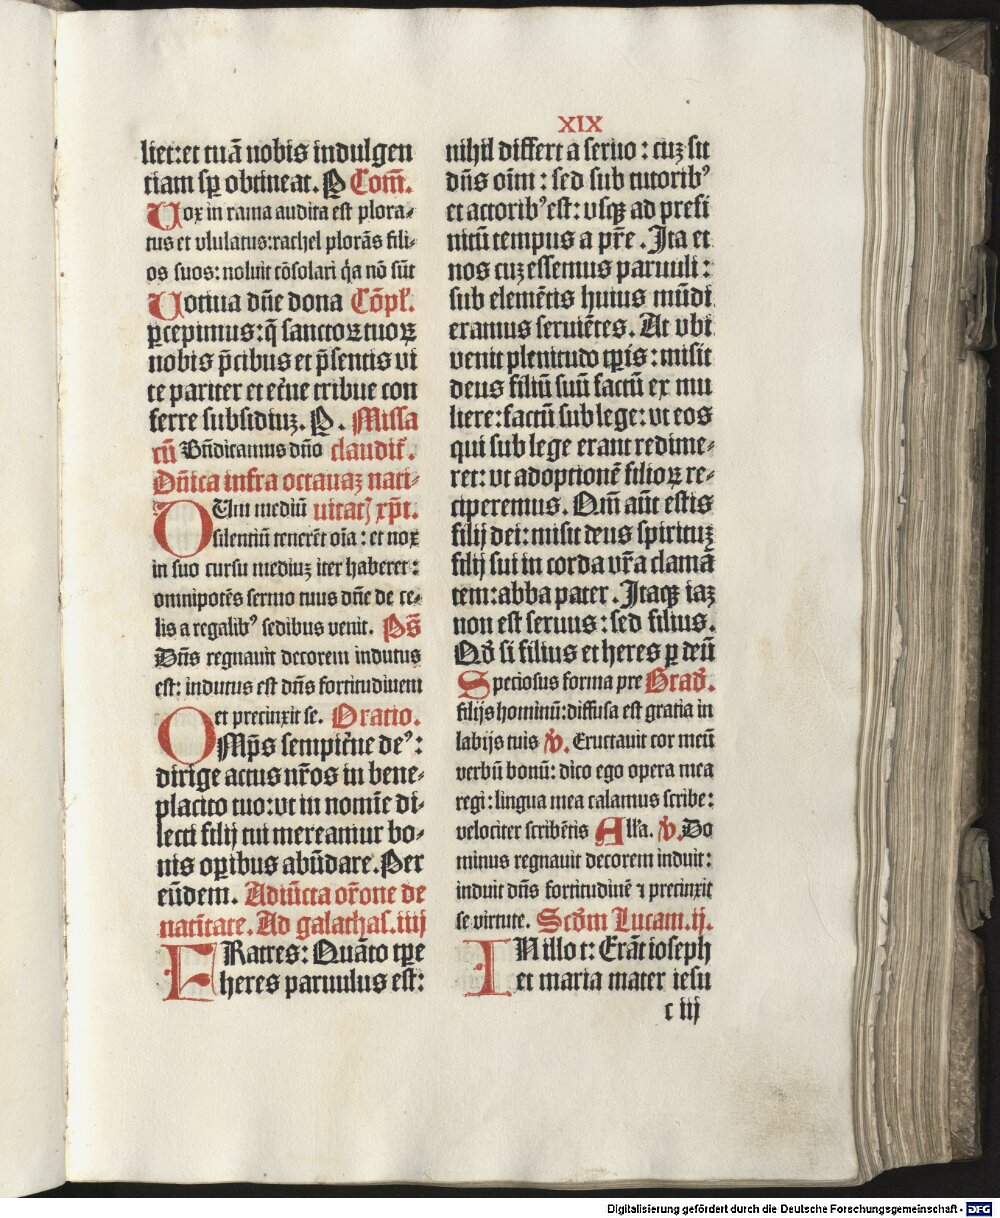 XIX
liet: et tuā nobis indulgen
tiam sp̄ obtineat. P Com̄.
Vox in rama audita est plora⸗
tus et vlulatus: rachel plorās fili⸗
os suos: noluit cōsolari q̇a nō sūt
Votiua dn̄e dona Cōpl'.
ꝑcepimus: q̄ sanctoꝝ tuoꝝ
nobis p̄cibus et p̄sentis vi
te pariter et et̓ne tribue con
ferre subsidiuꝫ. P. Missa
cū Bn̄dicamus dn̄o claudit᷑.
Dn̄ica infra octauaꝫ nati⸗
DUm mediū uitatꝭ xp̄i.
silentiū tenerēt oīa: et nox
in suo cursu mediuꝫ iter haberet:
omnipotēs sermo tuus dn̄e de ce⸗
lis a regalibꝰ sedibus venit. Ps̄
Dn̄s regnauit decorem indutus
est: indutus est dn̄s fortitudinem
et precinxit se. Oratio.
OMp̄s sempit̓ne deꝰ:
dirige actus nr̄os in bene⸗
placito tuo: vt in nomīe di⸗
lecti filij tui mereamur bo⸗
nis oꝑibus abūdare. Per
eūdem. Adiūcta or̄one de
natīitate. Ad galathas. iiij
FRatres: Quāto tꝑe
heres paruulus est:
nihil differt a seruo: cuꝫ sit
dn̄s oīm: sed sub tutoribꝰ
et actoribꝰ est: vsqꝫ ad prefi
nitū tempus a pr̄e. Ita et
nos cuꝫ essemus paruuli:
sub elemētis huius mūdi
eramus seruiētes. At vbi
venit plenitudo tꝑis: misit
deus filiū suū factū ex mu
liere: factū sub lege: vt eos
qui sub lege erant redime⸗
ret: vt adoptionē filioꝝ re⸗
ciperemus. Qm̄ aūt estis
filij dei: misit deus spirituꝫ
filij sui in corda vr̄a clamā
tem: abba pater. Itaqꝫ iaꝫ
non est seruus: sed filius.
Qd̓ si filius et heres ꝑ deū
Speciosus forma pre Grad̓.
filijs hominū: diffusa est gratia in
labijs tuis ꝟ. Eructauit cor meū
verbū bonū: dico ego opera mea
regi: lingua mea calamus scribe:
velociter scribētis Alľa. ꝟ. Do
minus regnauit decorem induit:
induit dn̄s fortitudinē ⁊ precinxit
se virtute. Scd̓m Lucam. ij.
IN illo t: Erāt ioseph
et maria mater iesu
c iij
Digitalisierung gefördert durch die Deutsche Forschungsgemeinschaft - DFG